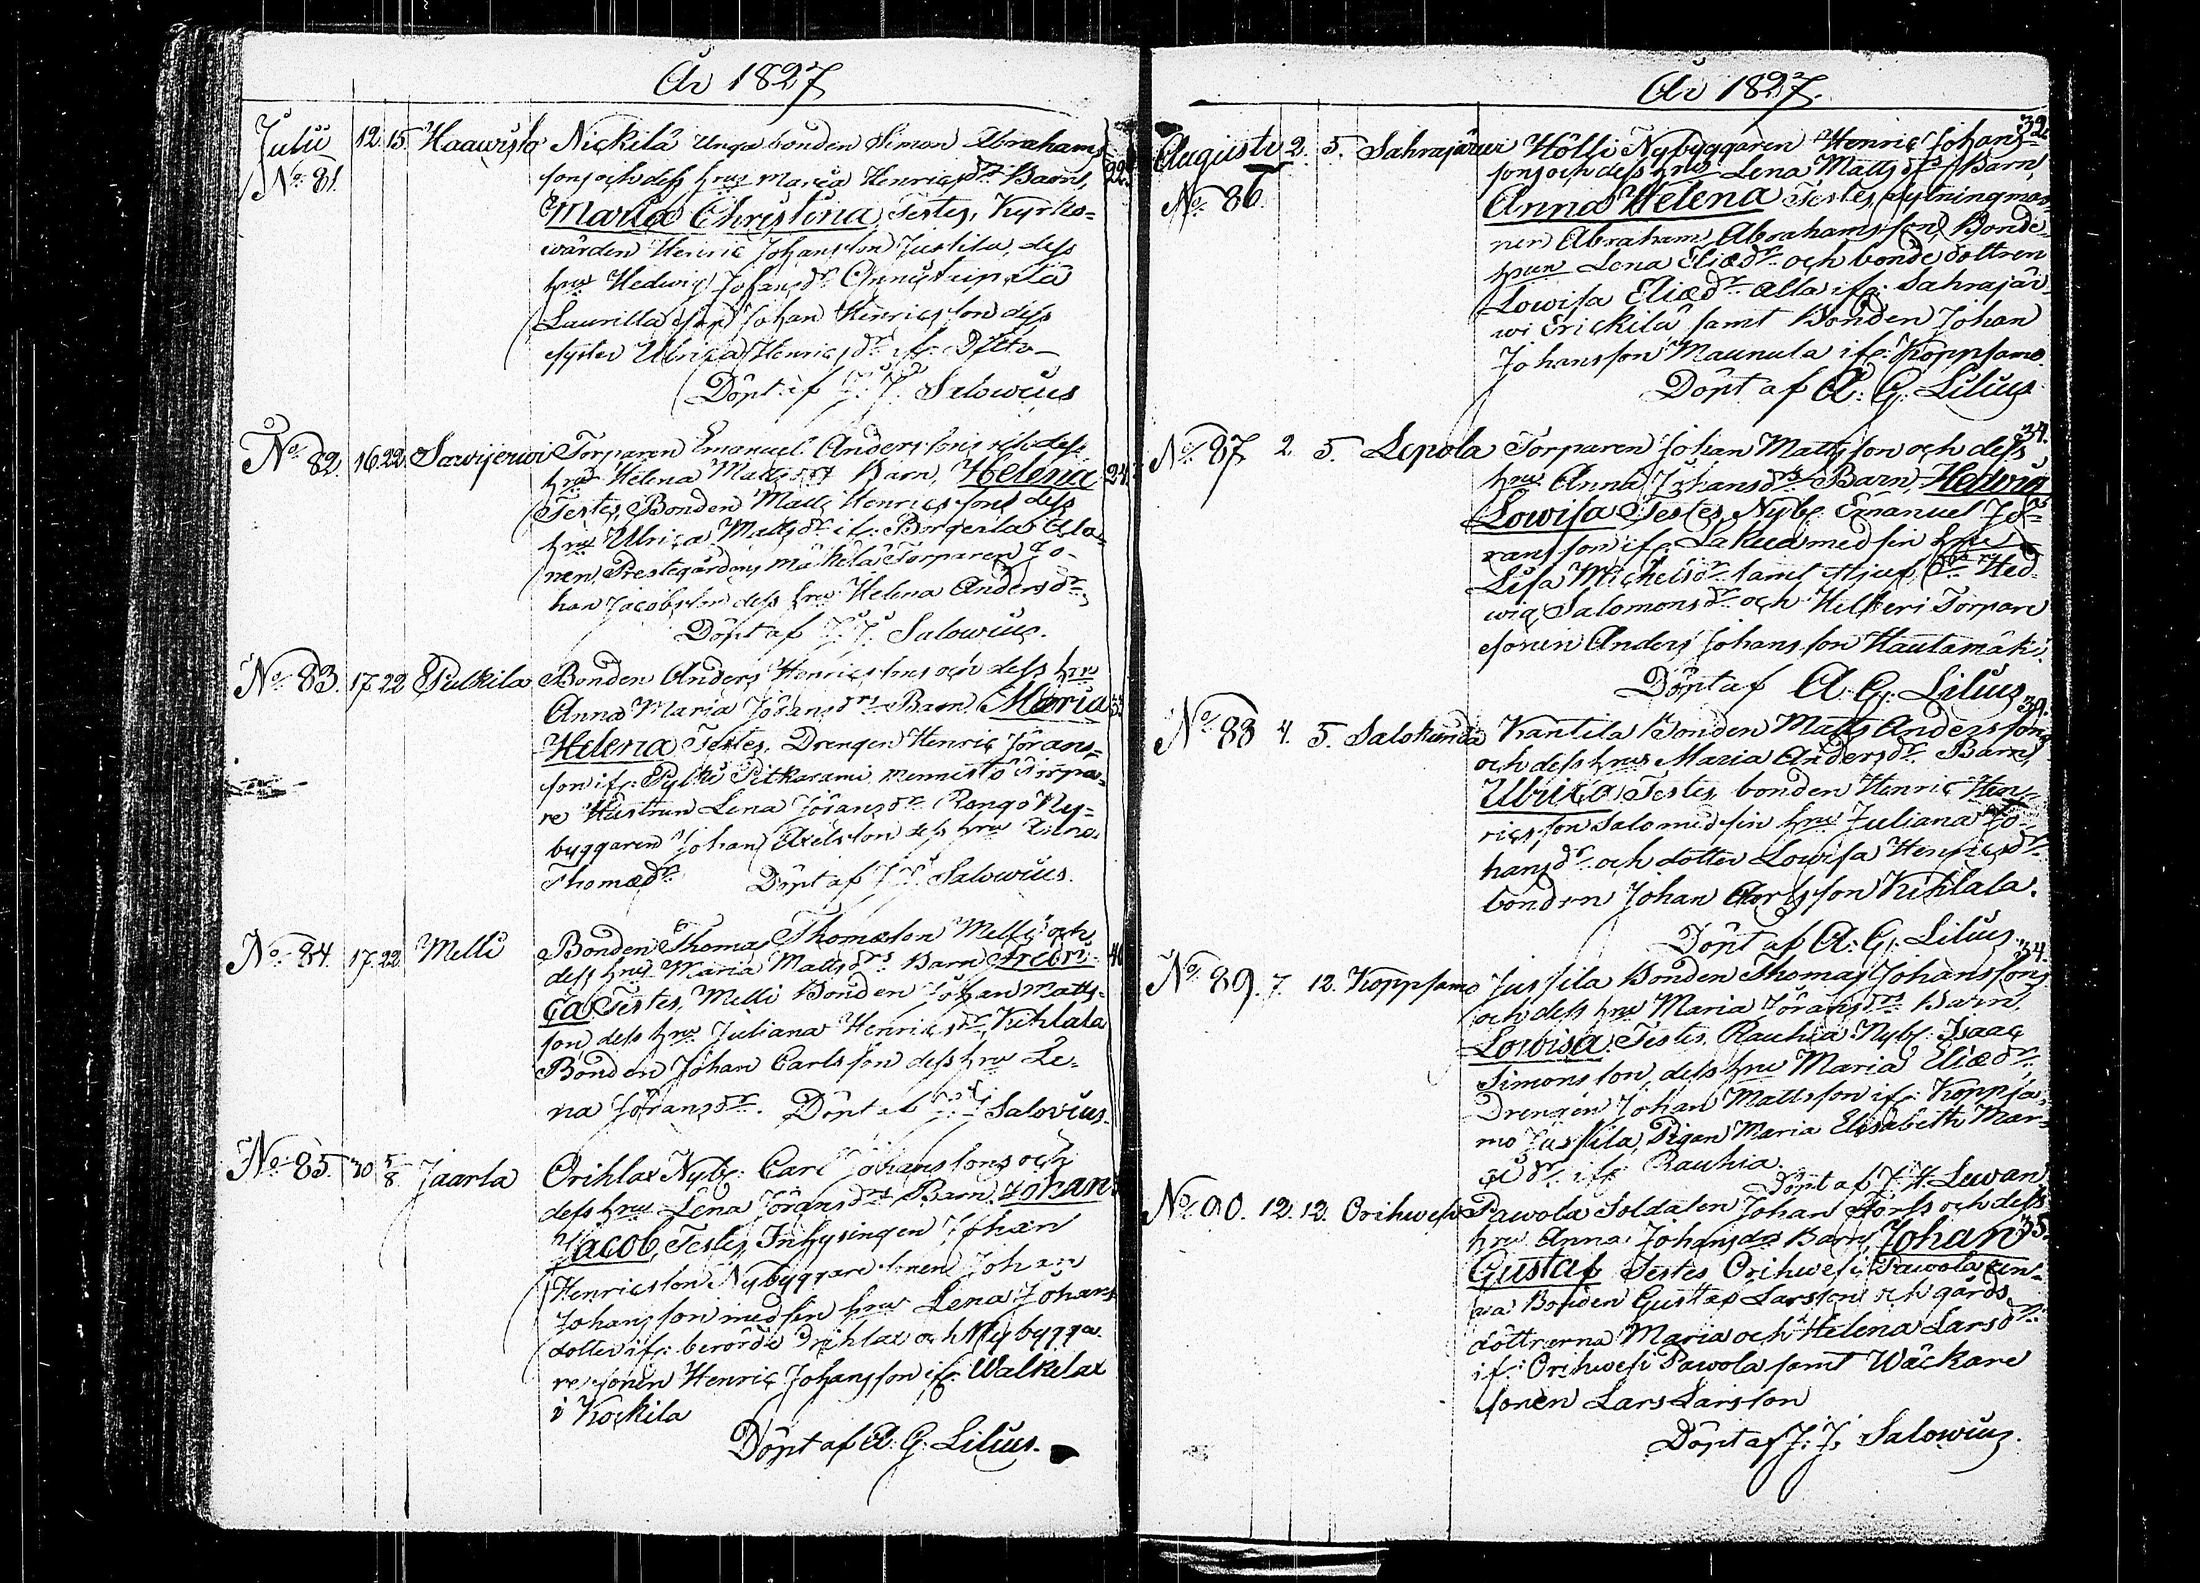 År 1827
Julii 12. 15. Haawisto Nickilä unga bonden Simon Abrahams
No. 81. sons och dess hru Maria Henricsdrs Barn, 22.
Maria Christina, Testes, Kyrko-
wärden Henric Johansson Jussila, dess
hru Hedwig Johansdr
Laurilla Johan Henricsson dess
syster Ulrica Henricsdr if: Ditto
Döpt af J. J. Salowius
No. 82. 16. 22. Sawijerwi Torparen Emanuel Anderssons och dess
hrus Helena Mattsdrs Barn, Helena 24.
Testes, Bonden Matts Henricsson dess
hru Ulrica Mattsdr if:
nen, Prestegårdens Mäkelä Torparen Jo-
han Jacobsson dess hru Helena Andersdr,
Döpt af J. J. Salowius.
No. 83. 17. 22 Pulkila Bonden Anders Henricssons och dess hru
Anna Maria Jöransdrs Barn Maria 33
Helena Testes, Drengen Henric Jörans-
son if: Torpa-
re Hustrun Lena Jöransdr Rango Ny-
byggaren Johan Axelsson dess hru
Thomædr. Döpt af J. J. Salowius.
No. 84. 17. 22. Melli Bonden Thomas Thomasson Melli och
dess hrus Maria Mattsdrs Barn Fredri- 40
ca Testes, Melli Bonden Johan Matts-
son, dess hru Juliana Henricsdr, Kihlala
Bonden Johan Carlsson dess hru Le-
na Jöransdr. Döpt af J. J. Salovius.
No. 85. 30 5/8. Jaarla Orihlax Nybr: Carl Johanssons och
dess hrus Lena Jöransdrs Barn, Johan
Jacob, Testes, Inhysingen Johan
Henricsson, Nybyggare sonen Johan
Johansson med sin hru Lena Johans
dotter if: berörde Orihlax och Nybygga-
re sonen Henric Johansson if: Walkelax
i Kockila
Döpt af A: G: Lilius.
År 1827.
Augusti 2. 5. Sahrajärwi Hölli Nybyggaren Henric Johans- 32.
No. 86. sons och dess hrus Lena Mattsdrs Barn,
Anna Helena Testes, Sytningman-
nen Abraham Abrahamsson, Bonde-
hrun Lena Eliædr och bonde dottren
Lowisa Eliædr alla if: Sahrajär-
wi Erickilä samt Bonden Johan
Johansson Maunula if: Koppsamo.
Döpt af A: G: Lilius
No. 87 2 5. Lepola Torparen Johan Mattsson och dess 34.
hrus Anna Johansdrs Barn, Hedwig
Lowisa Testes, Nybr: Emanuel Jö-
ransson if: Lahua med sin hru
Lisa Michelsdr samt Hed-
wig Salomonsdr och Torpare
sonen Anders Johansson Hautamäki.
Döpt af A. G. Lilius
No. 88 4. 5. Salokunda Kantila Bonden Matts Anderssons 39.
och dess hrus Maria Andersdr Barn,
Ulrica, Testes, bonden Henric Hen-
ricsson Salo med sin hru Juliana Jo-
hansdr och dotter Lowisa Henricsdr
bonden Johan Carlsson Kihlala.
Döpt af A. G. Lilius.
No. 89. 7. 12. Koppsamo Jussila Bonden Thomas Johanssons 34.
och dess hrus Maria Jöransdrs Barn,
Lowisa. Testes, Rauhia Nybr: Isaac
Simonsson, dess hru Maria Eliædr,
Drengen Johan Mattsson if: Koppsa-
mo Jussila, Pigan Maria Elisabeth Mar-
dr. if: Rauhia
Döpt af J. H. Lewan
No. 90. 12. 12. Orihwesi Pawola Soldaten Johan Torss och dess
hrus Anna Johansdrs Barn, Johan 35.
Gustaf Testes Orihwesi Pawola un-
ga Bonden Gustaf Larsson och gårds
döttrerna Maria och Helena Larsdr
if: Orihwesi Pawola samt Wäckare
sonen Lars Larsson
Döpt af J: J: Salowius.